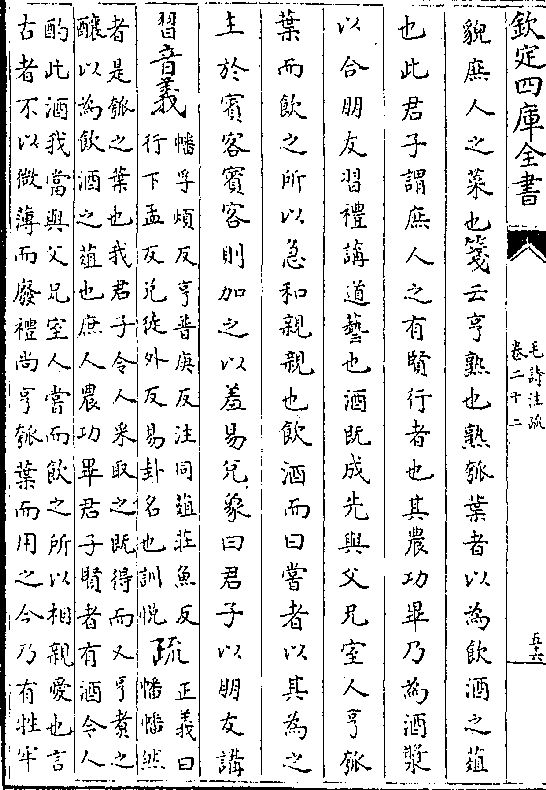 欽定四庫全書
毛詩注疏
卷二十二
五十六
貌庶人之菜也箋云亨熟也熟瓠葉者以為飲酒之菹
也此君子謂庶人之有賢行者也其農功畢乃為酒漿
以合朋友習禮講道藝也酒既成先與父兄室人亨瓠
葉而飲之所以急和親親也飲酒而曰嘗者以其為之
主於賓客賓客則加之以羞易兌象曰君子以朋友講
習音義
幡孚煩反亨普庚反注同菹莊魚反
行下孟反兌徒外反易卦名也訓悅
疏
正義曰
幡幡然
者是瓠之葉也我君子令人采取之既得而又亨煮之
釀以為飲酒之菹也庶人農功畢君子賢者有酒令人
酌此酒我當與父兄室人嘗而飲之所以相親愛也言
古者不以微薄而廢禮尚亨瓠葉而用之今乃有牲牢